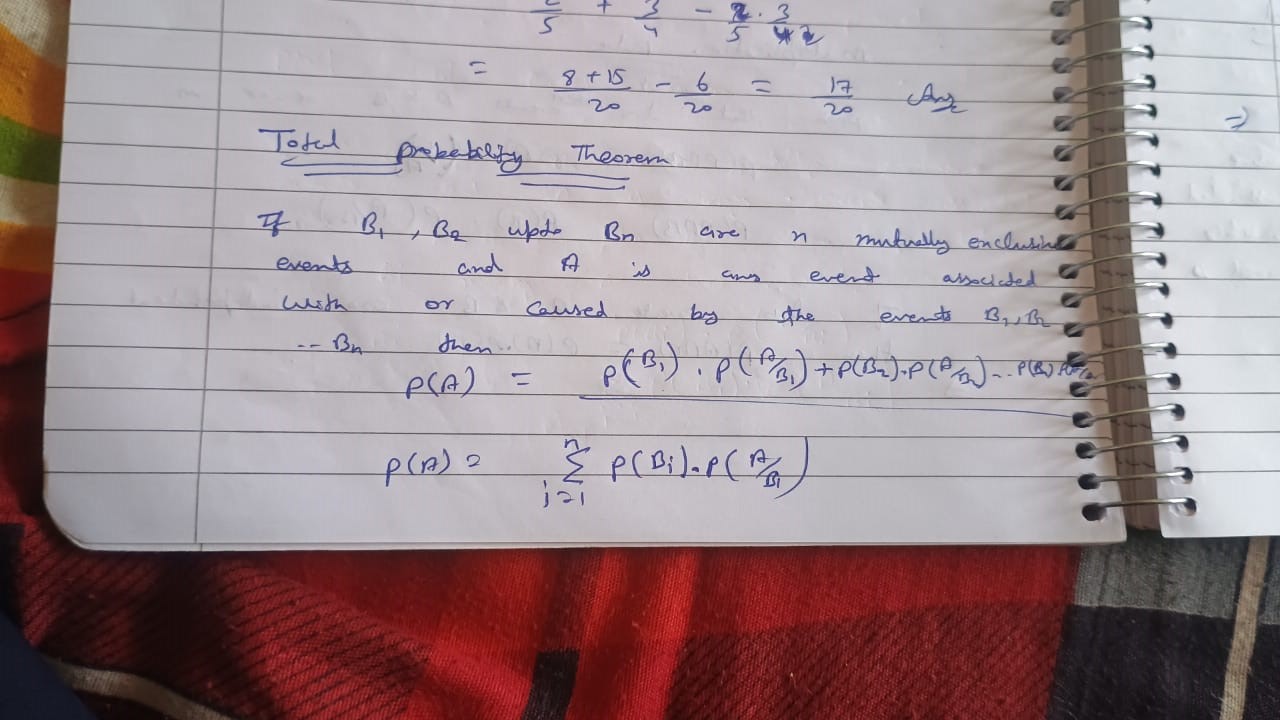 5 + 3/4 - 2/5 · 3/4
= 8+15/20 - 6/20 = 17/20 Ans
=>
Total probability Theorem
If B1, B2 upto Bn are n mutually exclusive
events and A is any event associated
with or caused by the events B1, B2
-- Bn then..
P(A) = P(B1) . P(A/B1) + P(B2).P(A/B2) -.. P(Bn)
n
P(A) = Σ P(Bi).P(A/Bi)
i=1